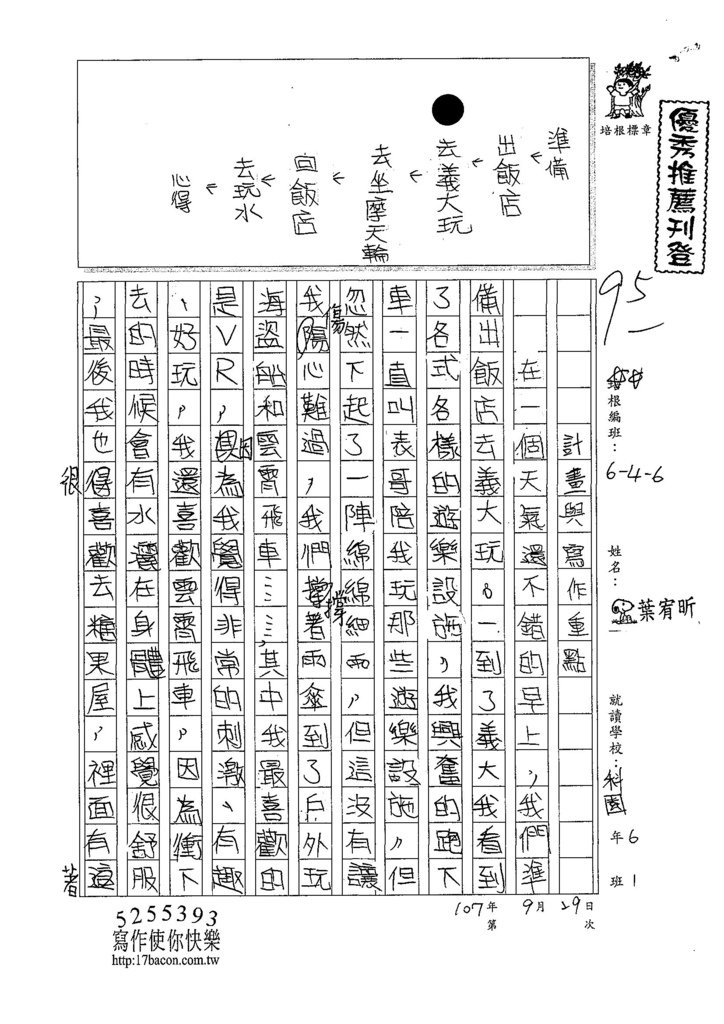 優秀推薦刊登
培根標章
準備
←
出飯店
←
去義大玩
←
去坐摩天輪
←
回飯店
←
去玩水
←
心得
95
培根編班：6-4-6
姓名：葉宥昕
就讀學校：科園
年6
班1
107年9月29日
第 次
計畫與寫作重點
在一個天氣還不錯的早上，我們準
備出飯店去義大玩。一到了義大我看到
了各式各樣的遊樂設施，我興奮的跑下
車一直叫表哥陪我玩那些遊樂設施，但
忽然下起了一陣綿綿細雨，但這沒有讓
我傷心難過，我們撐著雨傘到了戶外玩
海盜船和雲霄飛車……，其中我最喜歡的
是VR，因為我覺得非常的刺激、有趣
、好玩，我還喜歡雲霄飛車，因為衝下
去的時候會有水灑在身體上感覺很舒服
，最後我也很喜歡去糖果屋，裡面有這
著
5255393
寫作使你快樂
http:17bacon.com.tw